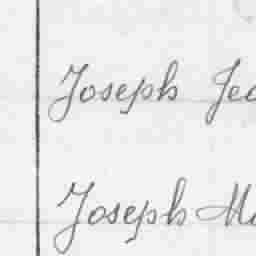 Joseph Jea
Joseph Ma